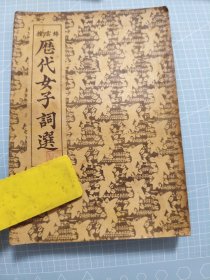 歷代女子詞選